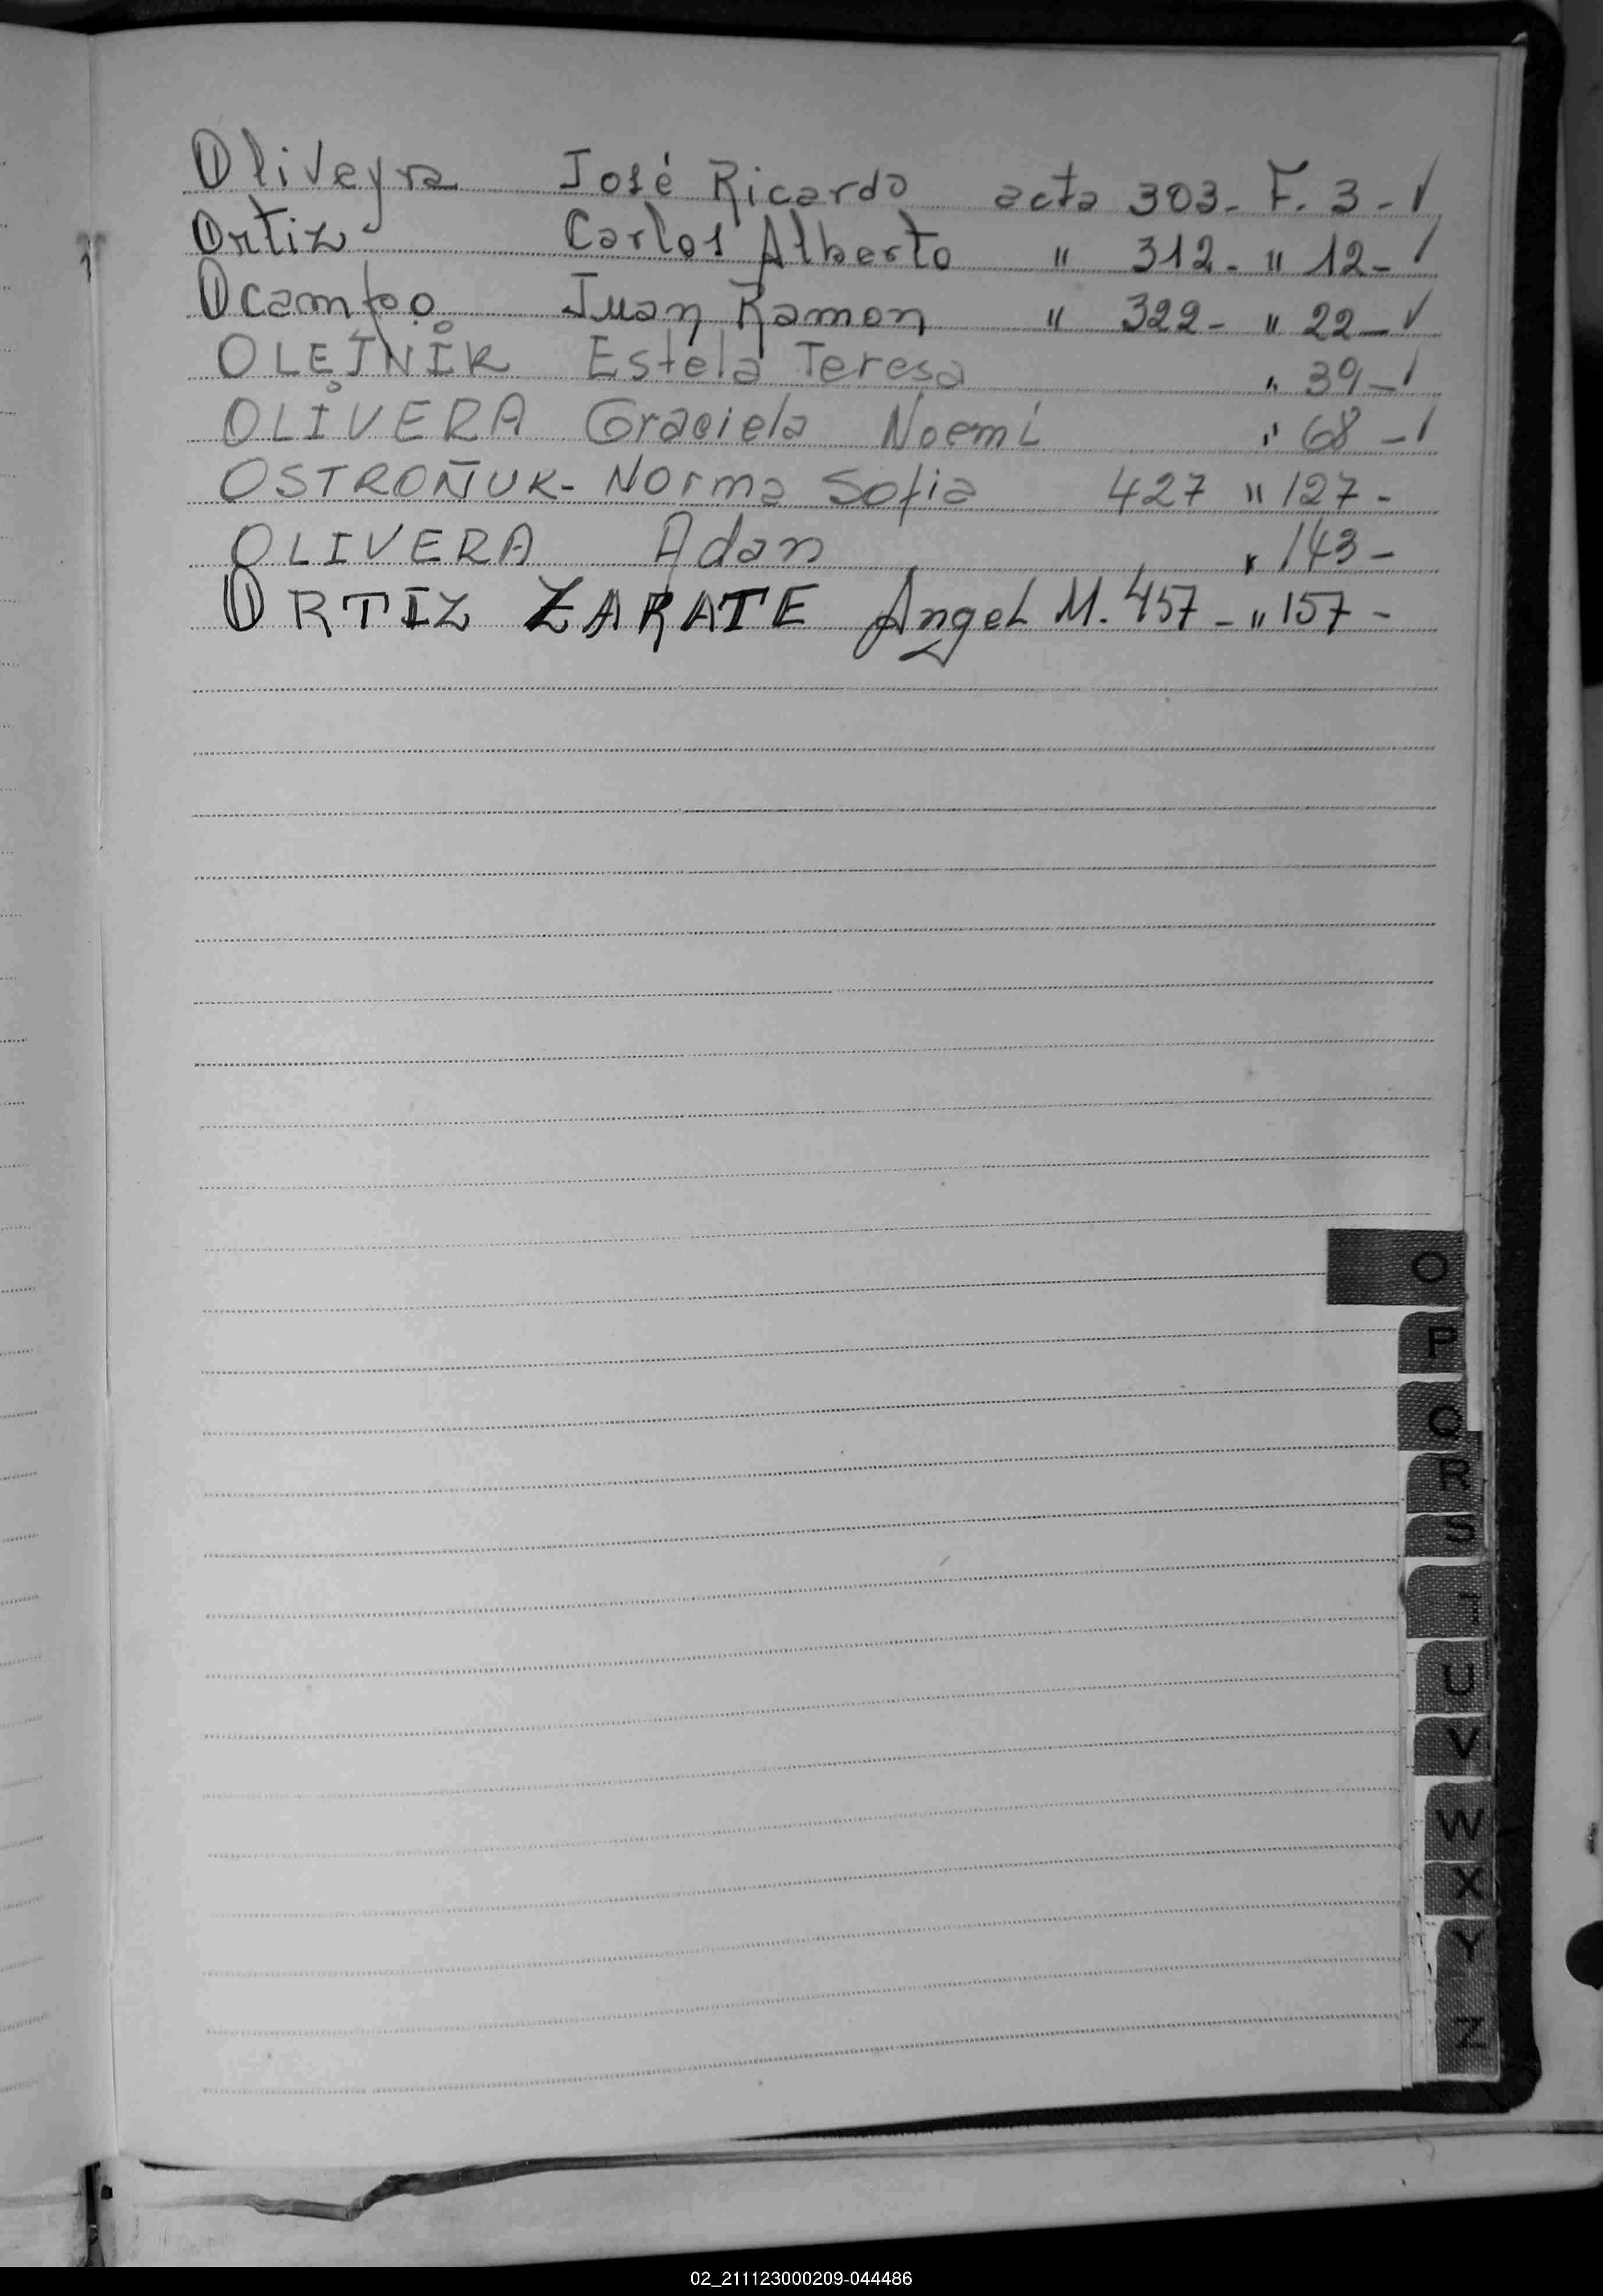 Oliveyra José Ricardo acta 303- F. 3- ✓
Ortiz Carlos Alberto " 312- " 12- ✓
Ocampo Juan Ramon " 322- " 22- ✓
OLEJNIK Estela Teresa " 39- ✓
OLIVERA Graciela Noemi " 68- ✓
OSTROÑUK- Norma Sofia 427 " 127-
OLIVERA Adan " 143-
ORTIZ ZARATE Angel M. 457- " 157-
O
P
Q
R
S
U
V
W
X
Y
Z
02_211123000209-044486